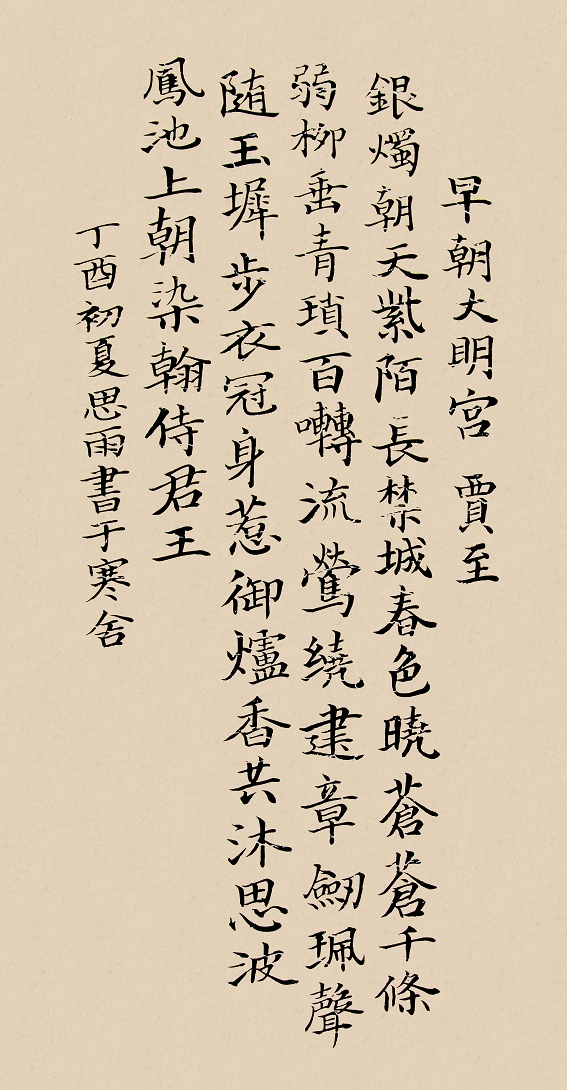 早朝大明宮 賈至
銀燭朝天紫陌長禁城春色曉蒼蒼千條
弱柳垂青瑣百囀流鶯繞建章劒珮聲
随玉墀步衣冠身惹御爐香共沐思波
鳳池上朝染翰侍君王
丁酉初夏思雨書于寒舍